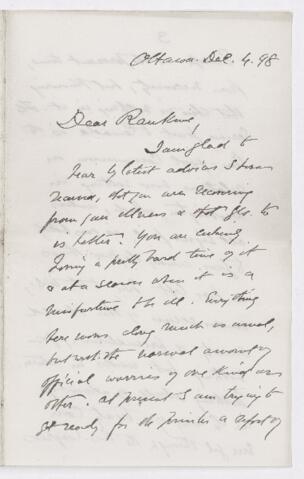 Ottawa. Dec. 4. 98
Dear Rankine,
I am glad to
hear by latest advices I have
received, that you are recovering
from your illness & that Geo. to
is better. You are certainly
having a pretty hard time of it
& at a season when it is a
misfortune to be ill. Everything
here moves along much as usual,
but with the normal amount of
official worries of one kind or
other. At present I am trying to
get ready for the printer a report of